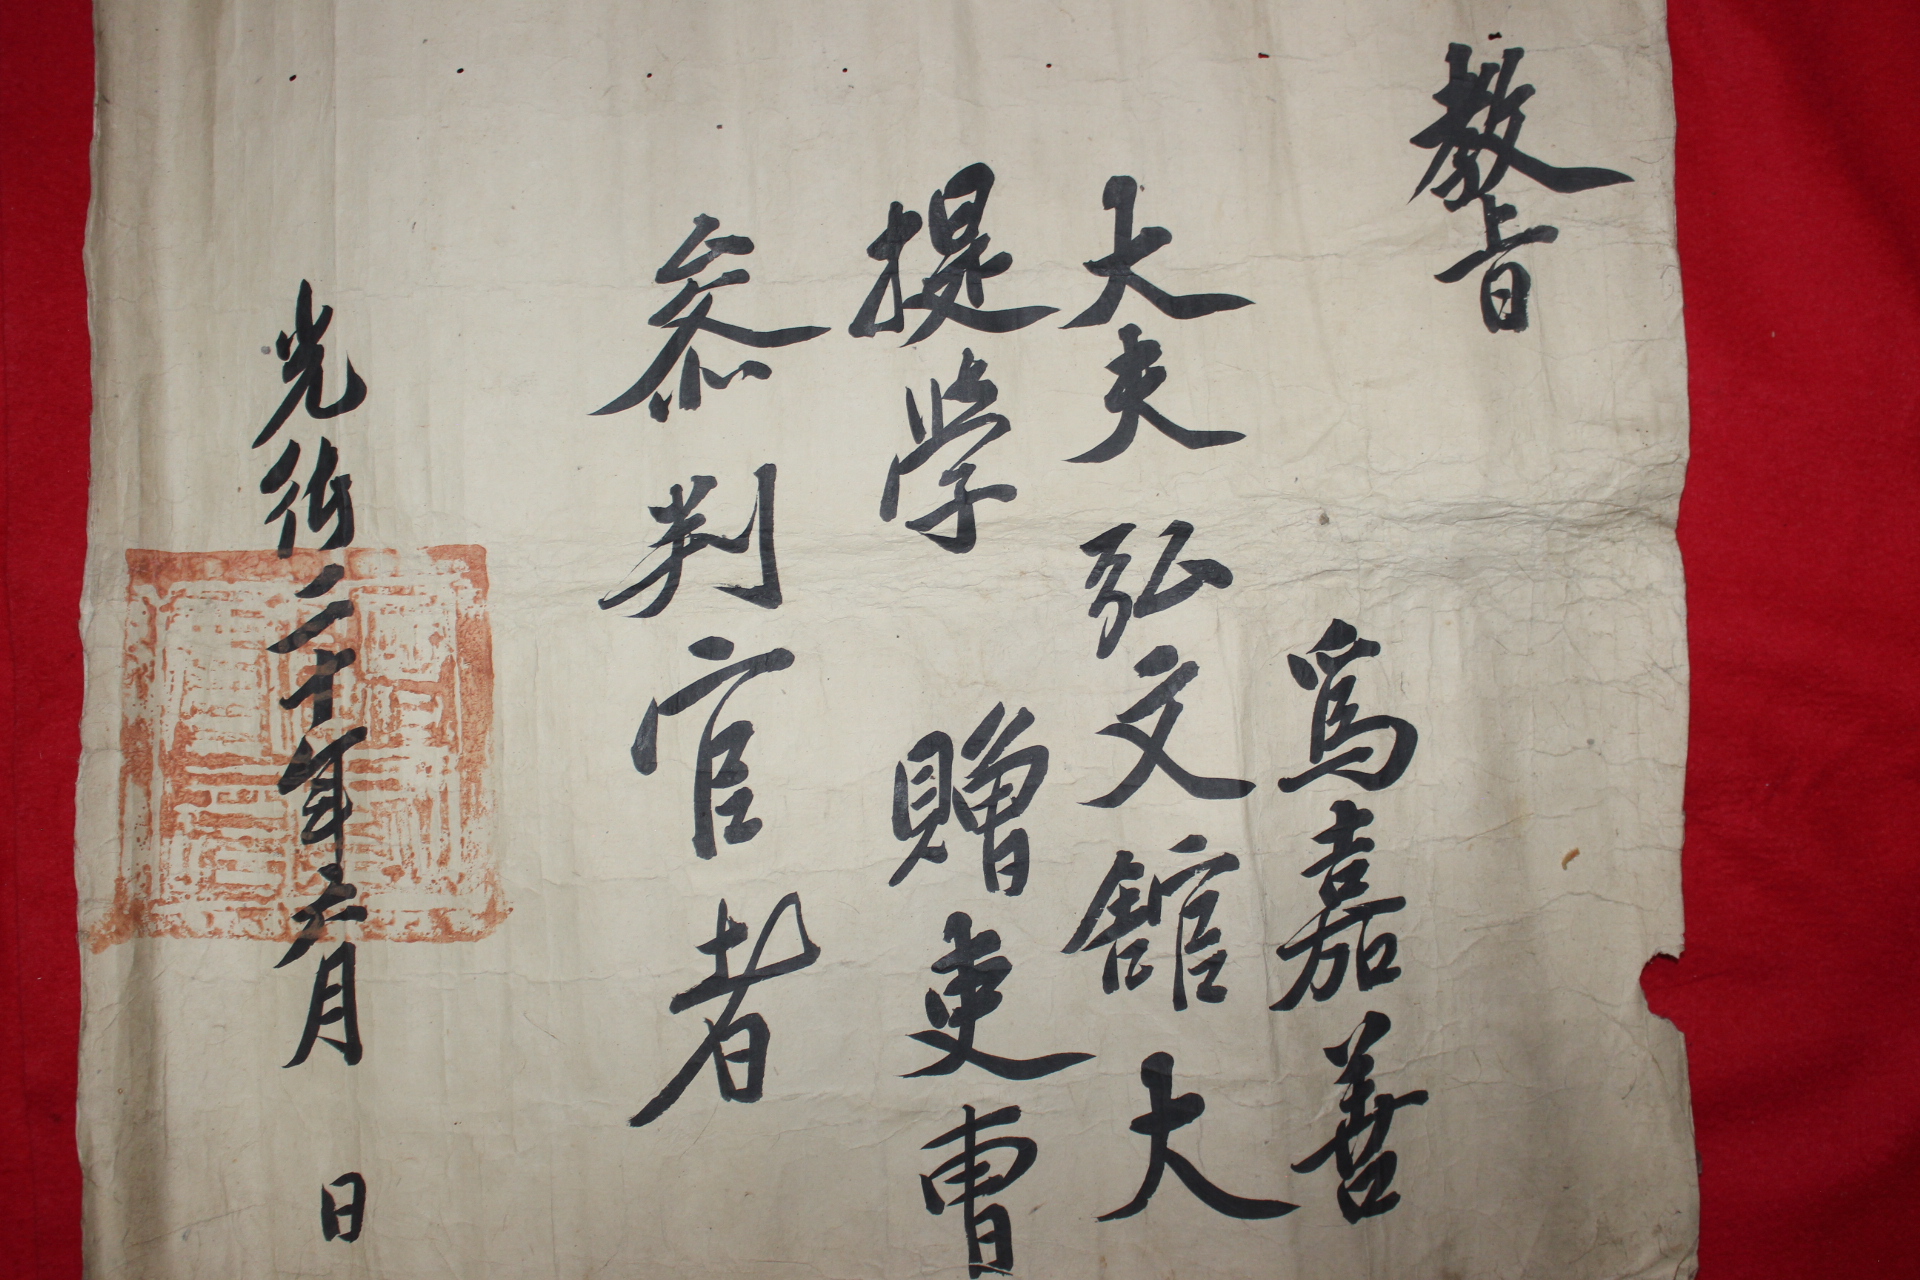 教旨
爲嘉善
大夫弘文舘大
提学贈吏曺
叅判官者
光緖二十年六月 日